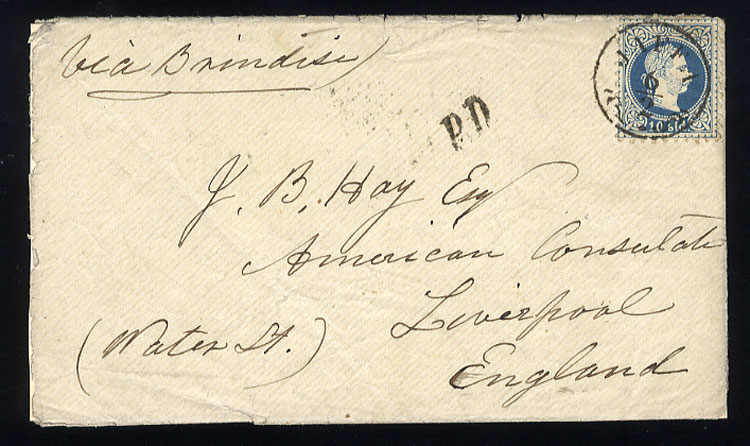 Via Brindisi
P.D
10 sld.
J. B. Hay Esq
American Consulate
Liverpool
(Water St.)
England